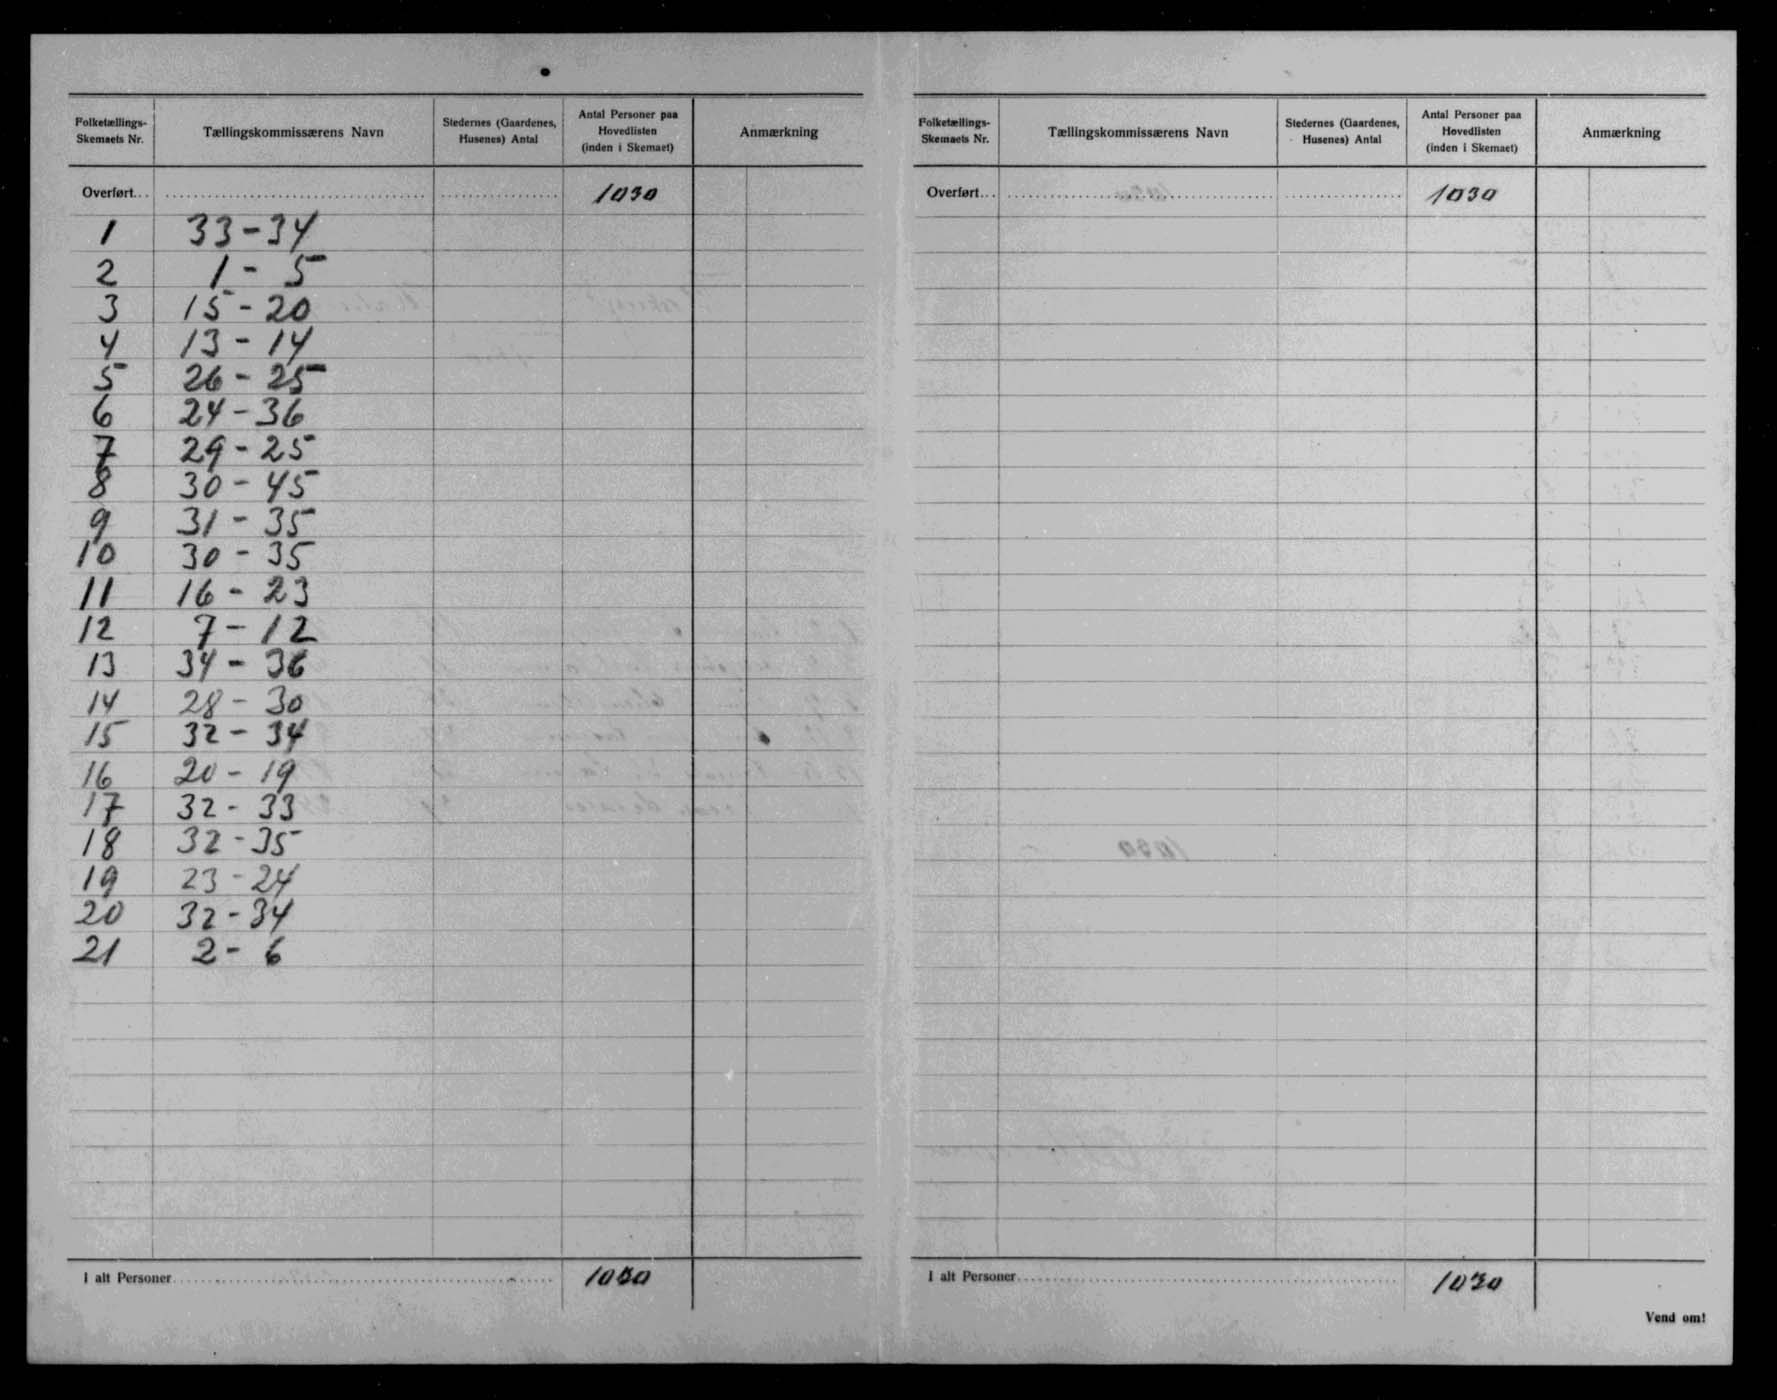 Folketællings-Skemaets Nr. Tællingskommissærens Navn Stedernes (Gaardenes, Husenes) Antal Antal Personer paa Hovedlisten (inden i Skemaet) Anmærkning
Overført... 1030
1 33-34
2 1-5
3 15-20
4 13-14
5 26-25
6 24-36
7 29-25
8 30-45
9 31-35
10 30-35
11 16-23
12 7-12
13 34-36
14 28-30
15 32-34
16 20-19
17 32-33
18 32-35
19 23-24
20 32-34
21 2-6
I alt Personer 1030
Folketællings-Skemaets Nr. Tællingskommissærens Navn Stedernes (Gaardenes, Husenes) Antal Antal Personer paa Hovedlisten (inden i Skemaet) Anmærkning
Overført... 1030
I alt Personer 1030
Vend om!